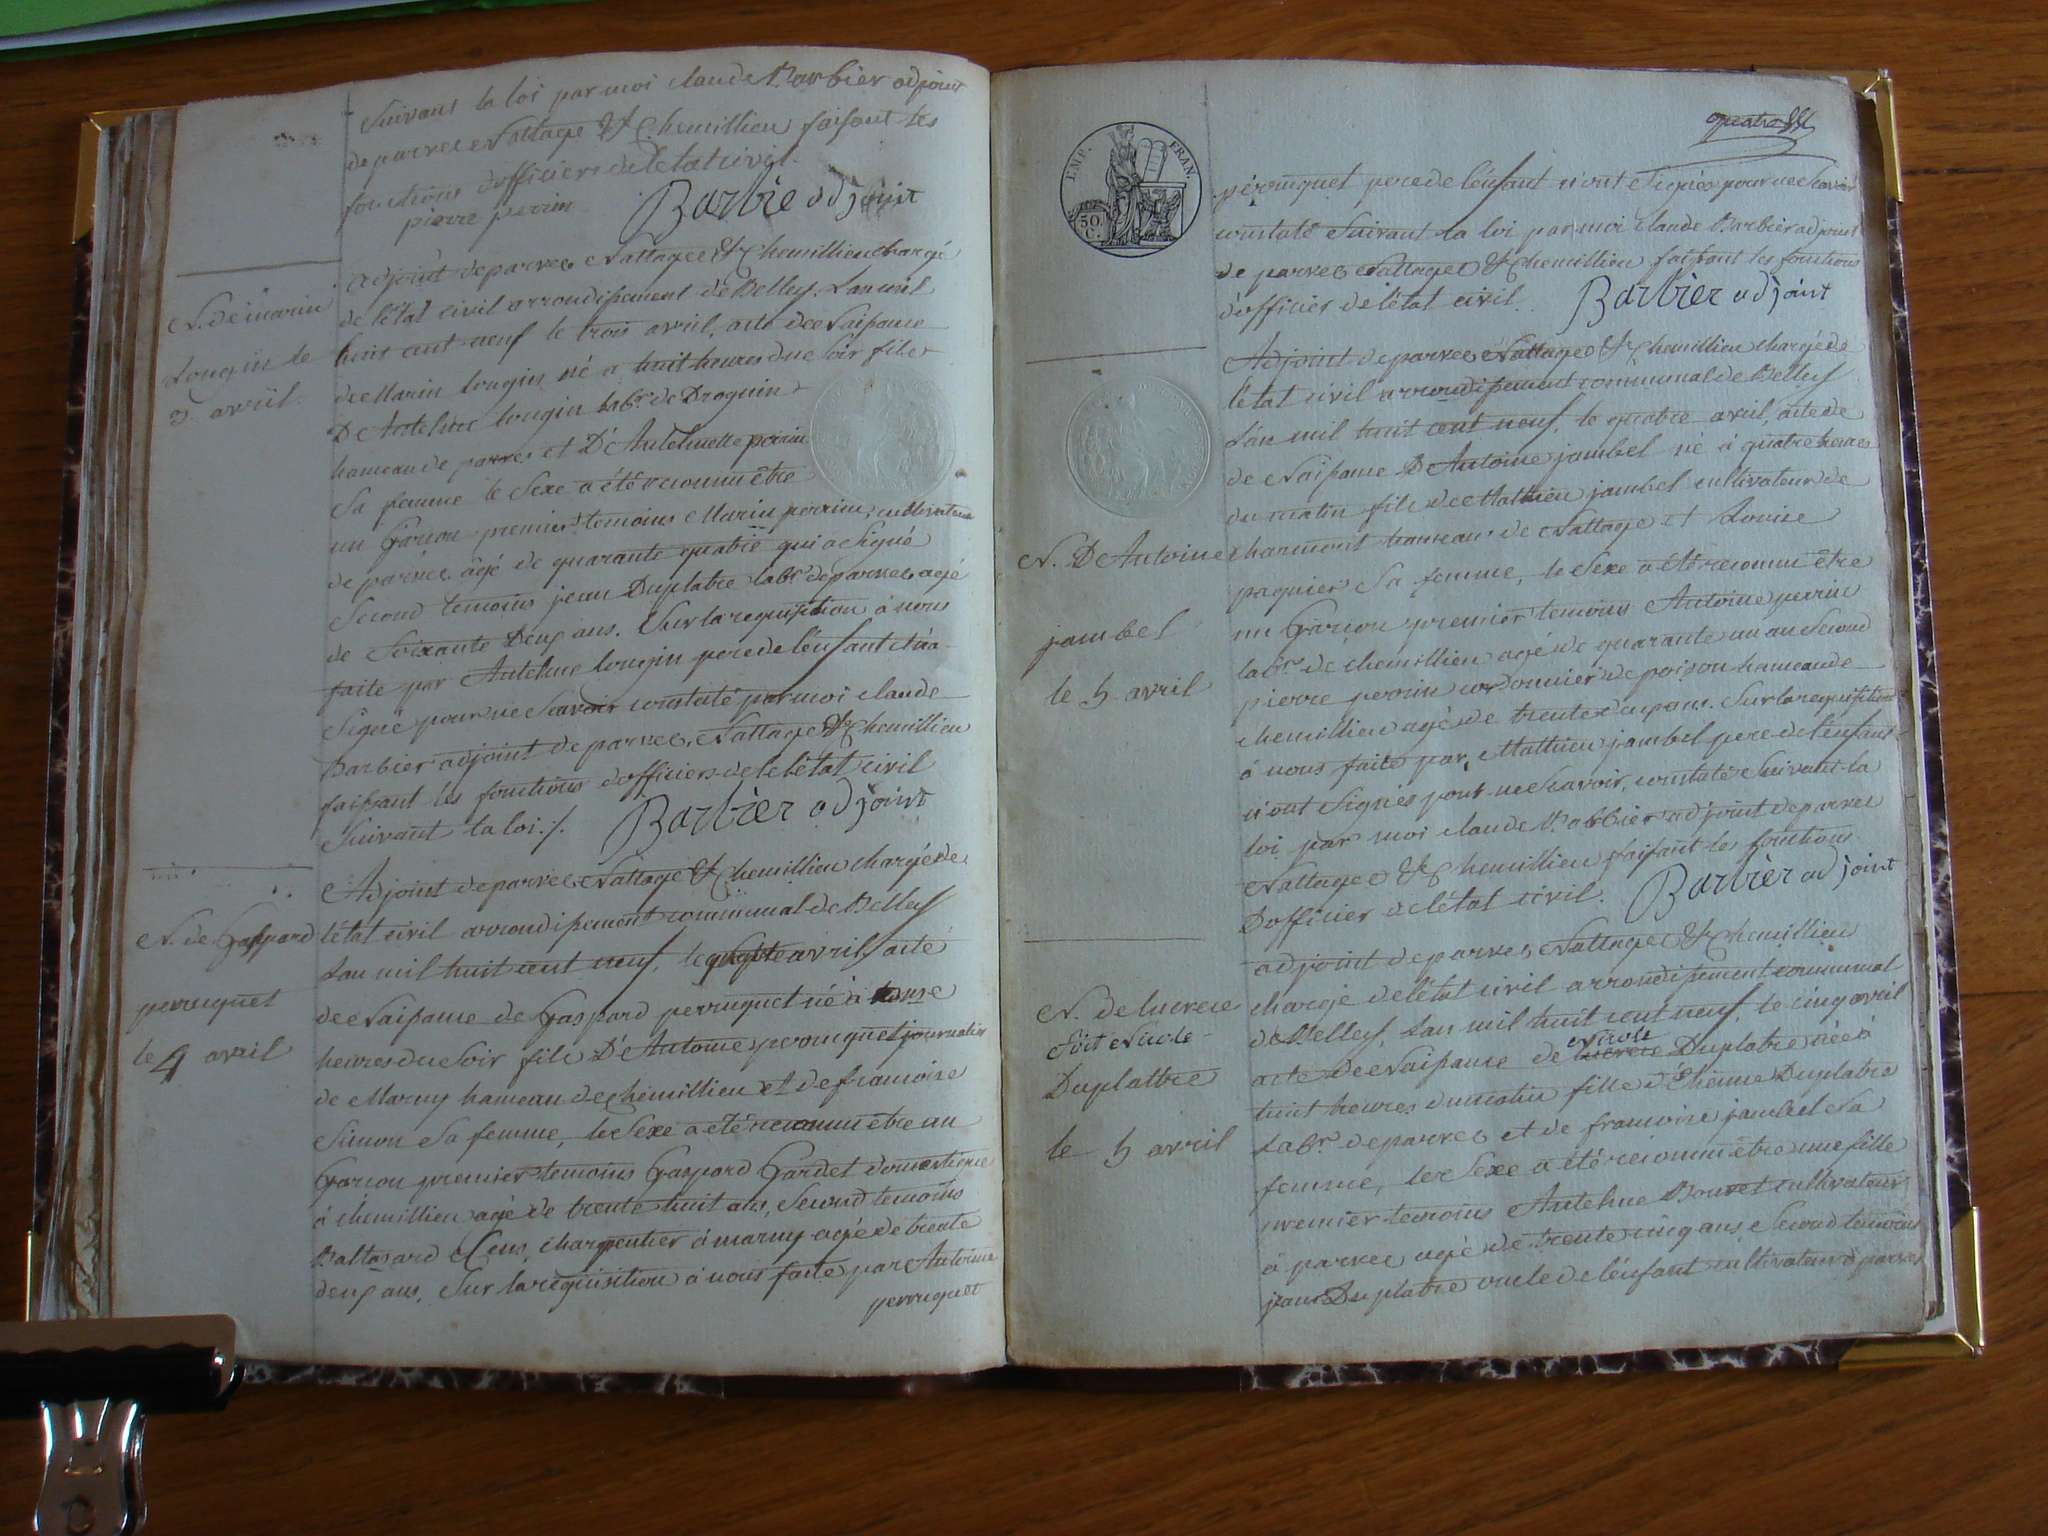 Suivant la loi par moi claude Barbier adjoint
de parves Nattage & Chemillieu faisant les
fonctions d'officier de l'état civil.
pierre perrin Barbier adjoint
N. de marin
Longin le
3. avril.
adjoint de parves Nattage & Chemillieu chargé
de l'état civil arrondissement de Belley. Lan mil
huit cent neuf le trois avril, acte de Naissance
de Marin longin né a huit heures du Soir fils
D'Antelme longin labr. de Broguin
hameau de parves et D'Antelmette perrin
Sa femme le Sexe a été reconnu être
un Garçon premier temoins Marin perrin, cultivateur
de parves âgé de quarante quatre qui a Signé
Second temoins jean Duplatre labr. de parves agé
de Soixante Deux ans. Sur la requisition à nous
faite par Antelme longin pere de l'enfant n'a
Signé pour ne Scavoir constaté par moi claude
Barbier adjoint de parves, Nattage & Chemillieu
faisant les fonctions d'officier de l'état civil
Suivant la loi ./. Barbier adjoint
N. de Gaspard
perruquet
le 4 avril
Adjoint de parves Nattage & Chemillieu chargé de
l'état civil arrondissement communal de Belley
Lan mil huit cent neuf, le avril acte
de Naissance de Gaspard perruquet né à
heures du Soir fils D'Antoine perruquet journalier
de Marny hameau de Chemillieu et de francoise
Simon Sa femme, le Sexe a été reconnu être un
Garçon premier temoins Gaspard Gardet domestique
à chemillieu agé de trente huit ans, Second temoins
Baltasard charpentier à marny agé de trente
deux ans, Sur la requisition à nous faite par Antoine
perruquet
EMP. FRAN.
50 C.
quatre
perruquet pere de l'enfant n'ont Signés pour ne Scavoir
constaté Suivant la loi par moi claude Barbier adjoint
de parves Nattage & Chemillieu faisant les fonctions
d'officier de l'état civil. Barbier adjoint
N. D'Antoine
jambel
le 5 avril
Adjoint de parves Nattage & Chemillieu chargé de
l'état civil arrondissement communal de Belley
Lan mil huit cent neuf, le quatre avril, acte de
de Naissance D'Antoine jambel né à quatre heures
du matin fils de Mathieu jambel cultivateur de
charmont hameau de Nattage et Louise
paquier Sa femme, le Sexe a été reconnu être
un Garçon premier temoins Antoine perrin
labr. de chemillieu agé de quarante un an Second
pierre perrin cordonnier de poison hameau de
chemillieu agé de trente deux ans. Sur la requisition
à nous faite par Mathieu jambel pere de l'enfant
n'ont Signés pour ne Scavoir, constaté Suivant la
loi par moi claude Barbier adjoint de parves
Nattage & Chemillieu faisant les fonctions
D'officier de l'état civil. Barbier adjoint
N. de lucrece
Soit Nicole
Duplattre
le 5 avril
adjoint de parves Nattage & Chemillieu
chargé de l'état civil arrondissement communal
de Belley, Lan mil huit cent neuf, le cinq avril
acte de Naissance de lucrece Nicole Duplatre née à
huit heures du matin fille d'Etienne Duplatre
Labr. de parves et de francoise jambel Sa
femme, le Sexe a été reconnu être une fille
premier temoins Antelme Bouvet cultivateur
à parves agé de trente cinq ans, Second temoins
jean Duplatre oncle de l'enfant cultivateur à parves